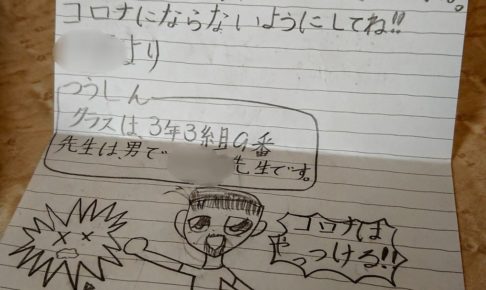 コロナにならないようにしてね!!
より
つうしん
クラスは、3年3組9番
先生は、男で 先生です。
コロナは
やっつける!!